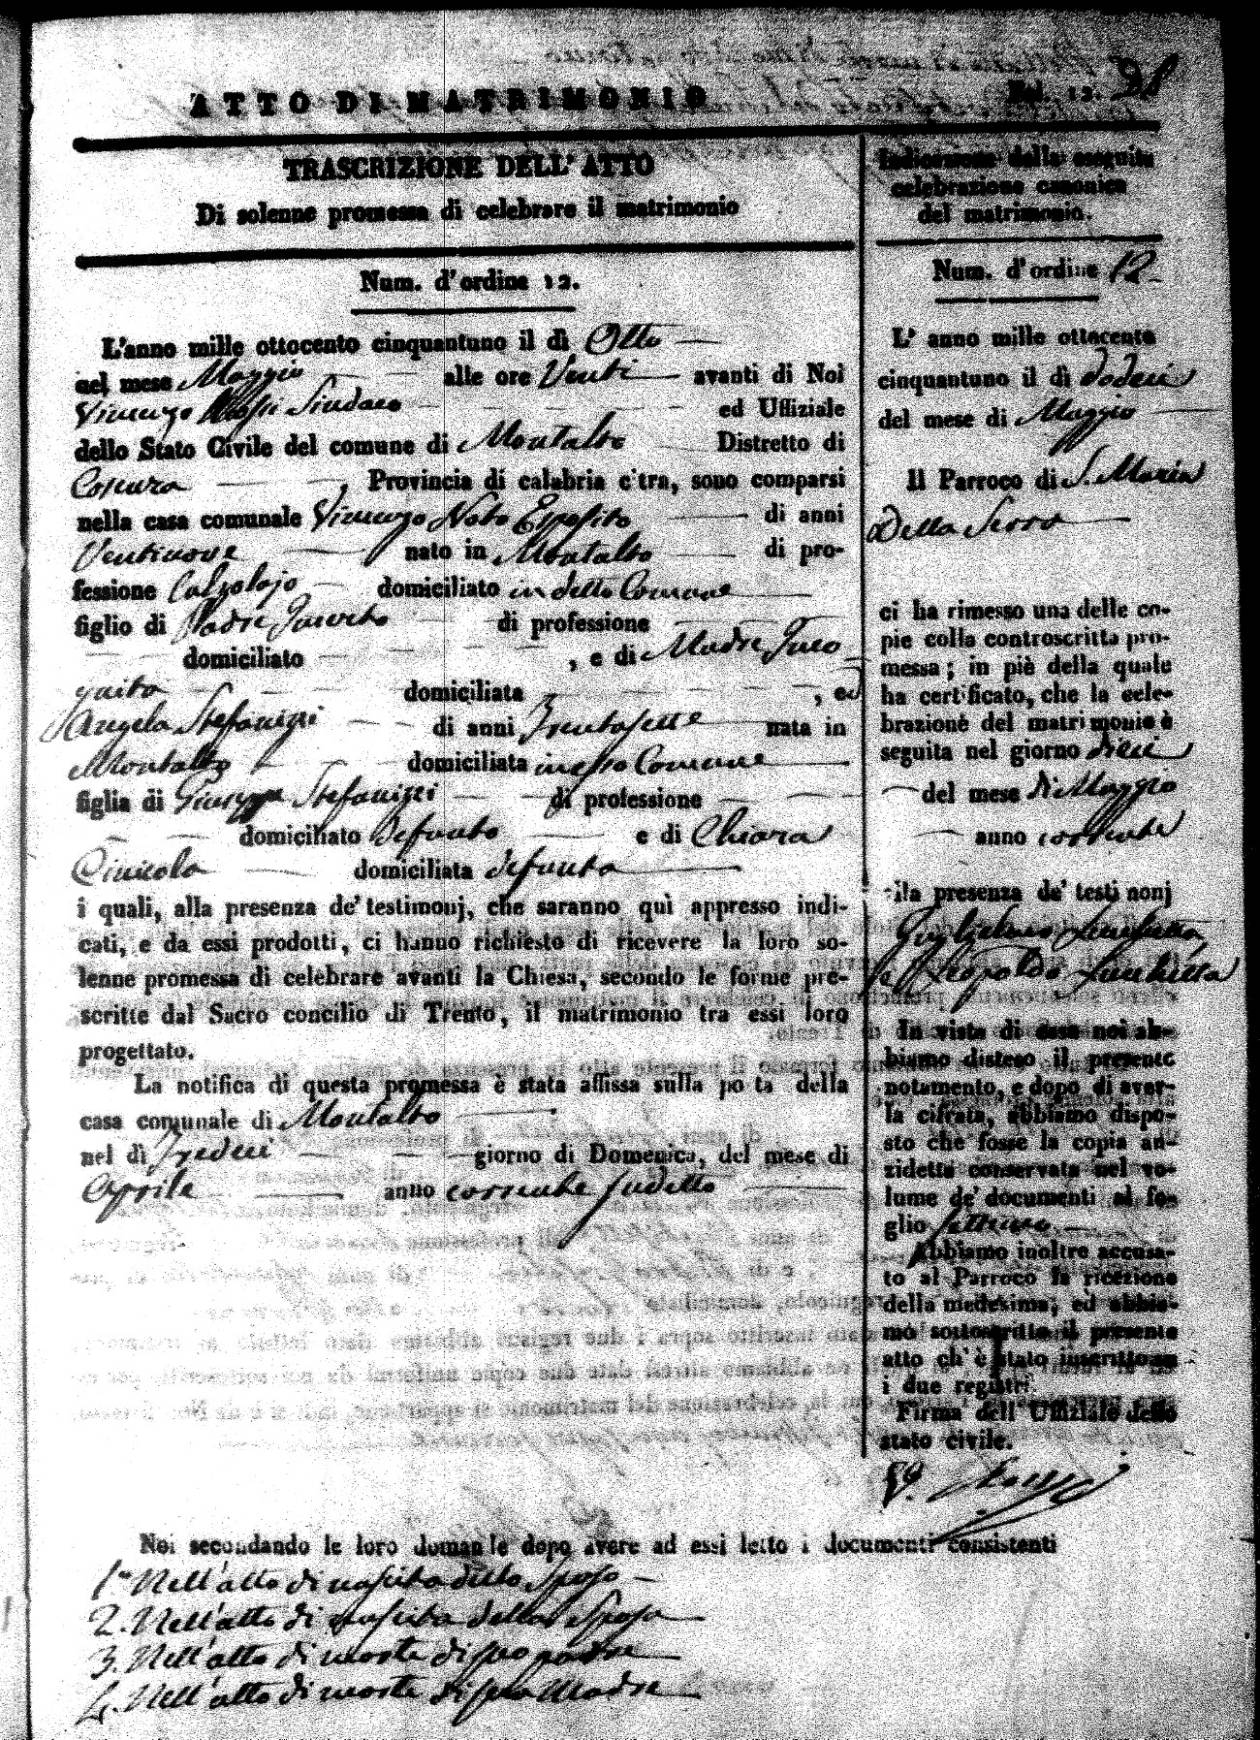 ATTO DI MATRIMONIO
Fol. 12. 98
TRASCRIZIONE DELL'ATTO
Di solenne promessa di celebrare il matrimonio
Num. d'ordine 12.
L'anno mille ottocento cinquantuno il dì Otto
nel mese Maggio alle ore Venti avanti di Noi
Vincenzo Rossi Sindaco ed Uffiziale
dello Stato Civile del comune di Montalto Distretto di
Cosenza, Provincia di calabria citra, sono comparsi
nella casa comunale Vincenzo Noto Esposito di anni
Ventinove nato in Montalto di pro-
fessione Calzolajo domiciliato in detto Comune
figlio di Padre Incerto di professione
domiciliato , e di Madre Inco
gnita domiciliata , ed
Angela Stefanizzi di anni Trentasette nata in
Montalto domiciliata in esso Comune
figlia di Giuseppe Stefanizzi di professione
domiciliato defunto e di Chiara
domiciliata defunta
i quali, alla presenza de' testimonj, che saranno quì appresso indi-
cati, e da essi prodotti, ci hanno richiesto di ricevere la loro so-
lenne promessa di celebrare avanti la Chiesa, secondo le forme pre-
scritte dal Sacro concilio di Trento, il matrimonio tra essi loro
progettato.
La notifica di questa promessa è stata affissa sulla po ta della
casa comunale di Montalto
nel dì Tredeci giorno di Domenica, del mese di
Aprile anno corrente sudetto
Indicazione della eseguita
celebrazione canonica
del matrimonio.
Num. d'ordine 12
L' anno mille ottocento
cinquantuno il dì dodeci
del mese di Maggio
Il Parroco di S. Maria
Della Serra
ci ha rimesso una delle co-
pie colla controscritta pro-
messa; in piè della quale
ha certificato, che la cele-
brazione del matrimonio è
seguita nel giorno dieci
del mese di Maggio
anno corrente
alla presenza de' testimonj
Guglielmo
e Leopoldo
In vista di essa noi ab-
biamo disteso il presente
notamento, e dopo di aver-
la cifrata, abbiamo dispo-
sto che fosse la copia an-
zidetta conservata nel vo-
lume de' documenti al fo-
glio settimo
Abbiamo inoltre accusa-
to al Parroco la ricezione
della medesima; ed abbia-
mo sottoscritto il presente
atto ch' è stato inscritto su
i due registri.
Firma dell' Uffiziale dello
stato civile.
Rossi
Noi secondando le loro domande dopo avere ad essi letto i documenti consistenti
1° Nell'atto di nascita dello Sposo
2. Nell'atto di nascita della Sposa
3. Nell'atto di morte di suo padre
4. Nell'atto di morte di sua Madre